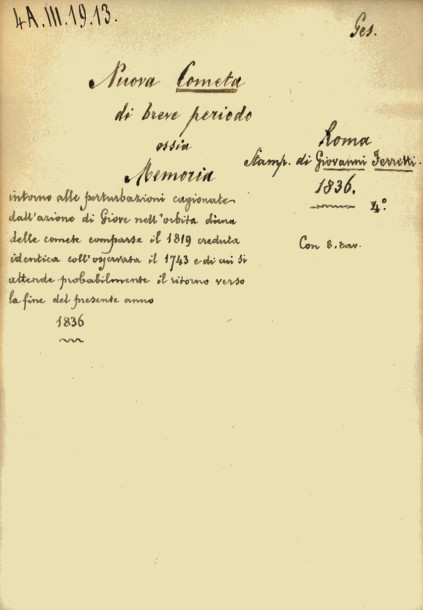 4A.III.19.13.
Ges.
Nuova Cometa
di breve periodo
ossia
Memoria
intorno alle perturbazioni cagionate
dall'azione di Giove nell'orbita d'una
delle comete comparse il 1819 creduta
identica coll'osservata il 1743 e di cui si
attende probabilmente il ritorno verso
la fine del presente anno
1836
Roma
Stamp. di Giovanni Ferretti.
1836.
4.°
Con 8. tav.